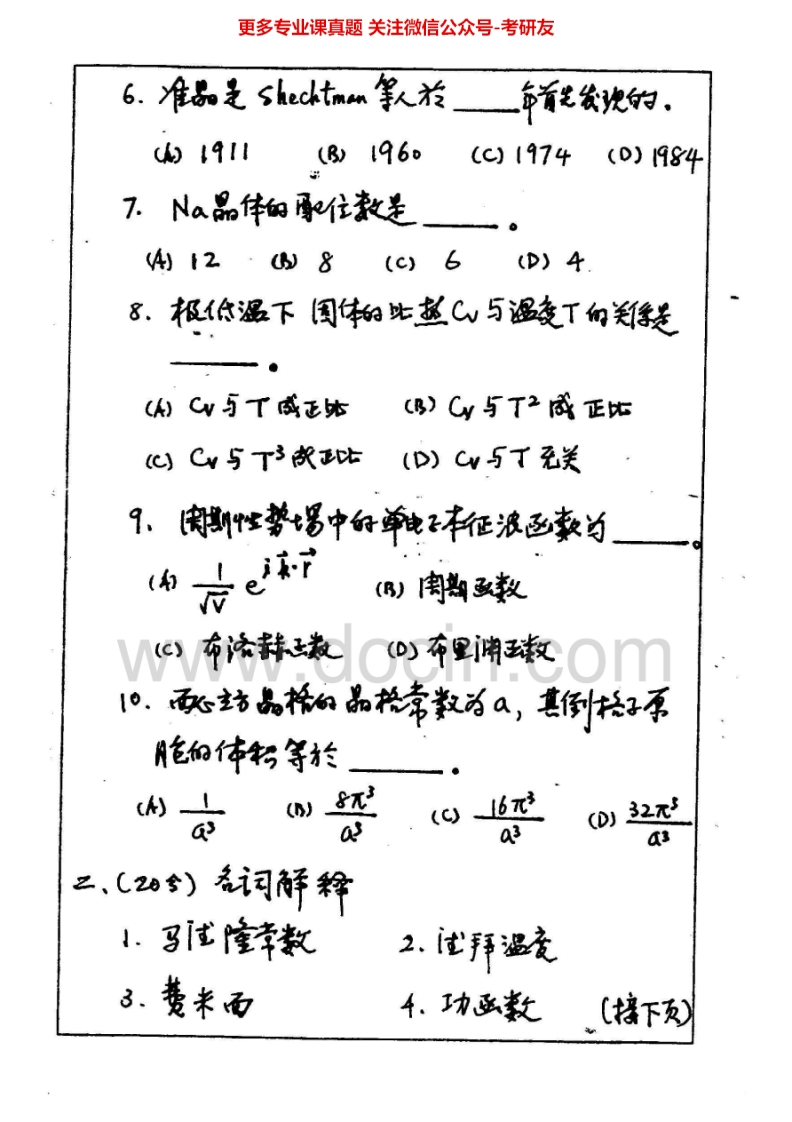 更多专业课真题 关注微信公众号-考研友
6. 准晶是 Shechtman 等人於 ______ 年首先发现的。
(A) 1911 (B) 1960 (C) 1974 (D) 1984
7. Na晶体的配位数是 ______。
(A) 12 (B) 8 (C) 6 (D) 4.
8. 极低温下 固体的比热 Cv 与温度 T 的关係是
______。
(A) Cv 与 T 成正比 (B) Cv 与 T² 成正比
(C) Cv 与 T³ 成正比 (D) Cv 与 T 无关
9. 周期性势场中的单电子本征波函数为 ______。
(A) 1/√V e^{i k⃗·r⃗} (B) 周期函数
(C) 布洛赫函数 (D) 布里渊函数
www.docin.com
10. 面心立方晶格的晶格常数为 a, 其倒格子原
胞的体积等於 ______.
(A) 1/a³ (B) 8π³/a³ (C) 16π³/a³ (D) 32π³/a³
二、(20分) 名词解释
1. 马德隆常数 2. 德拜温度
3. 费米面 4. 功函数 (接下页)